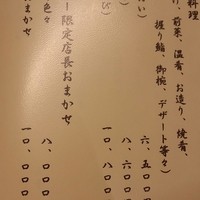 料理
け、前菜、温肴、お造り、焼肴、
握り鮨、御椀、デザート等々)
い) 六、五〇〇
) 八、六〇〇
び) 一〇、〇〇〇
ー限定店長おまかせ
色々 八、〇〇〇
まかせ 一〇、〇〇〇